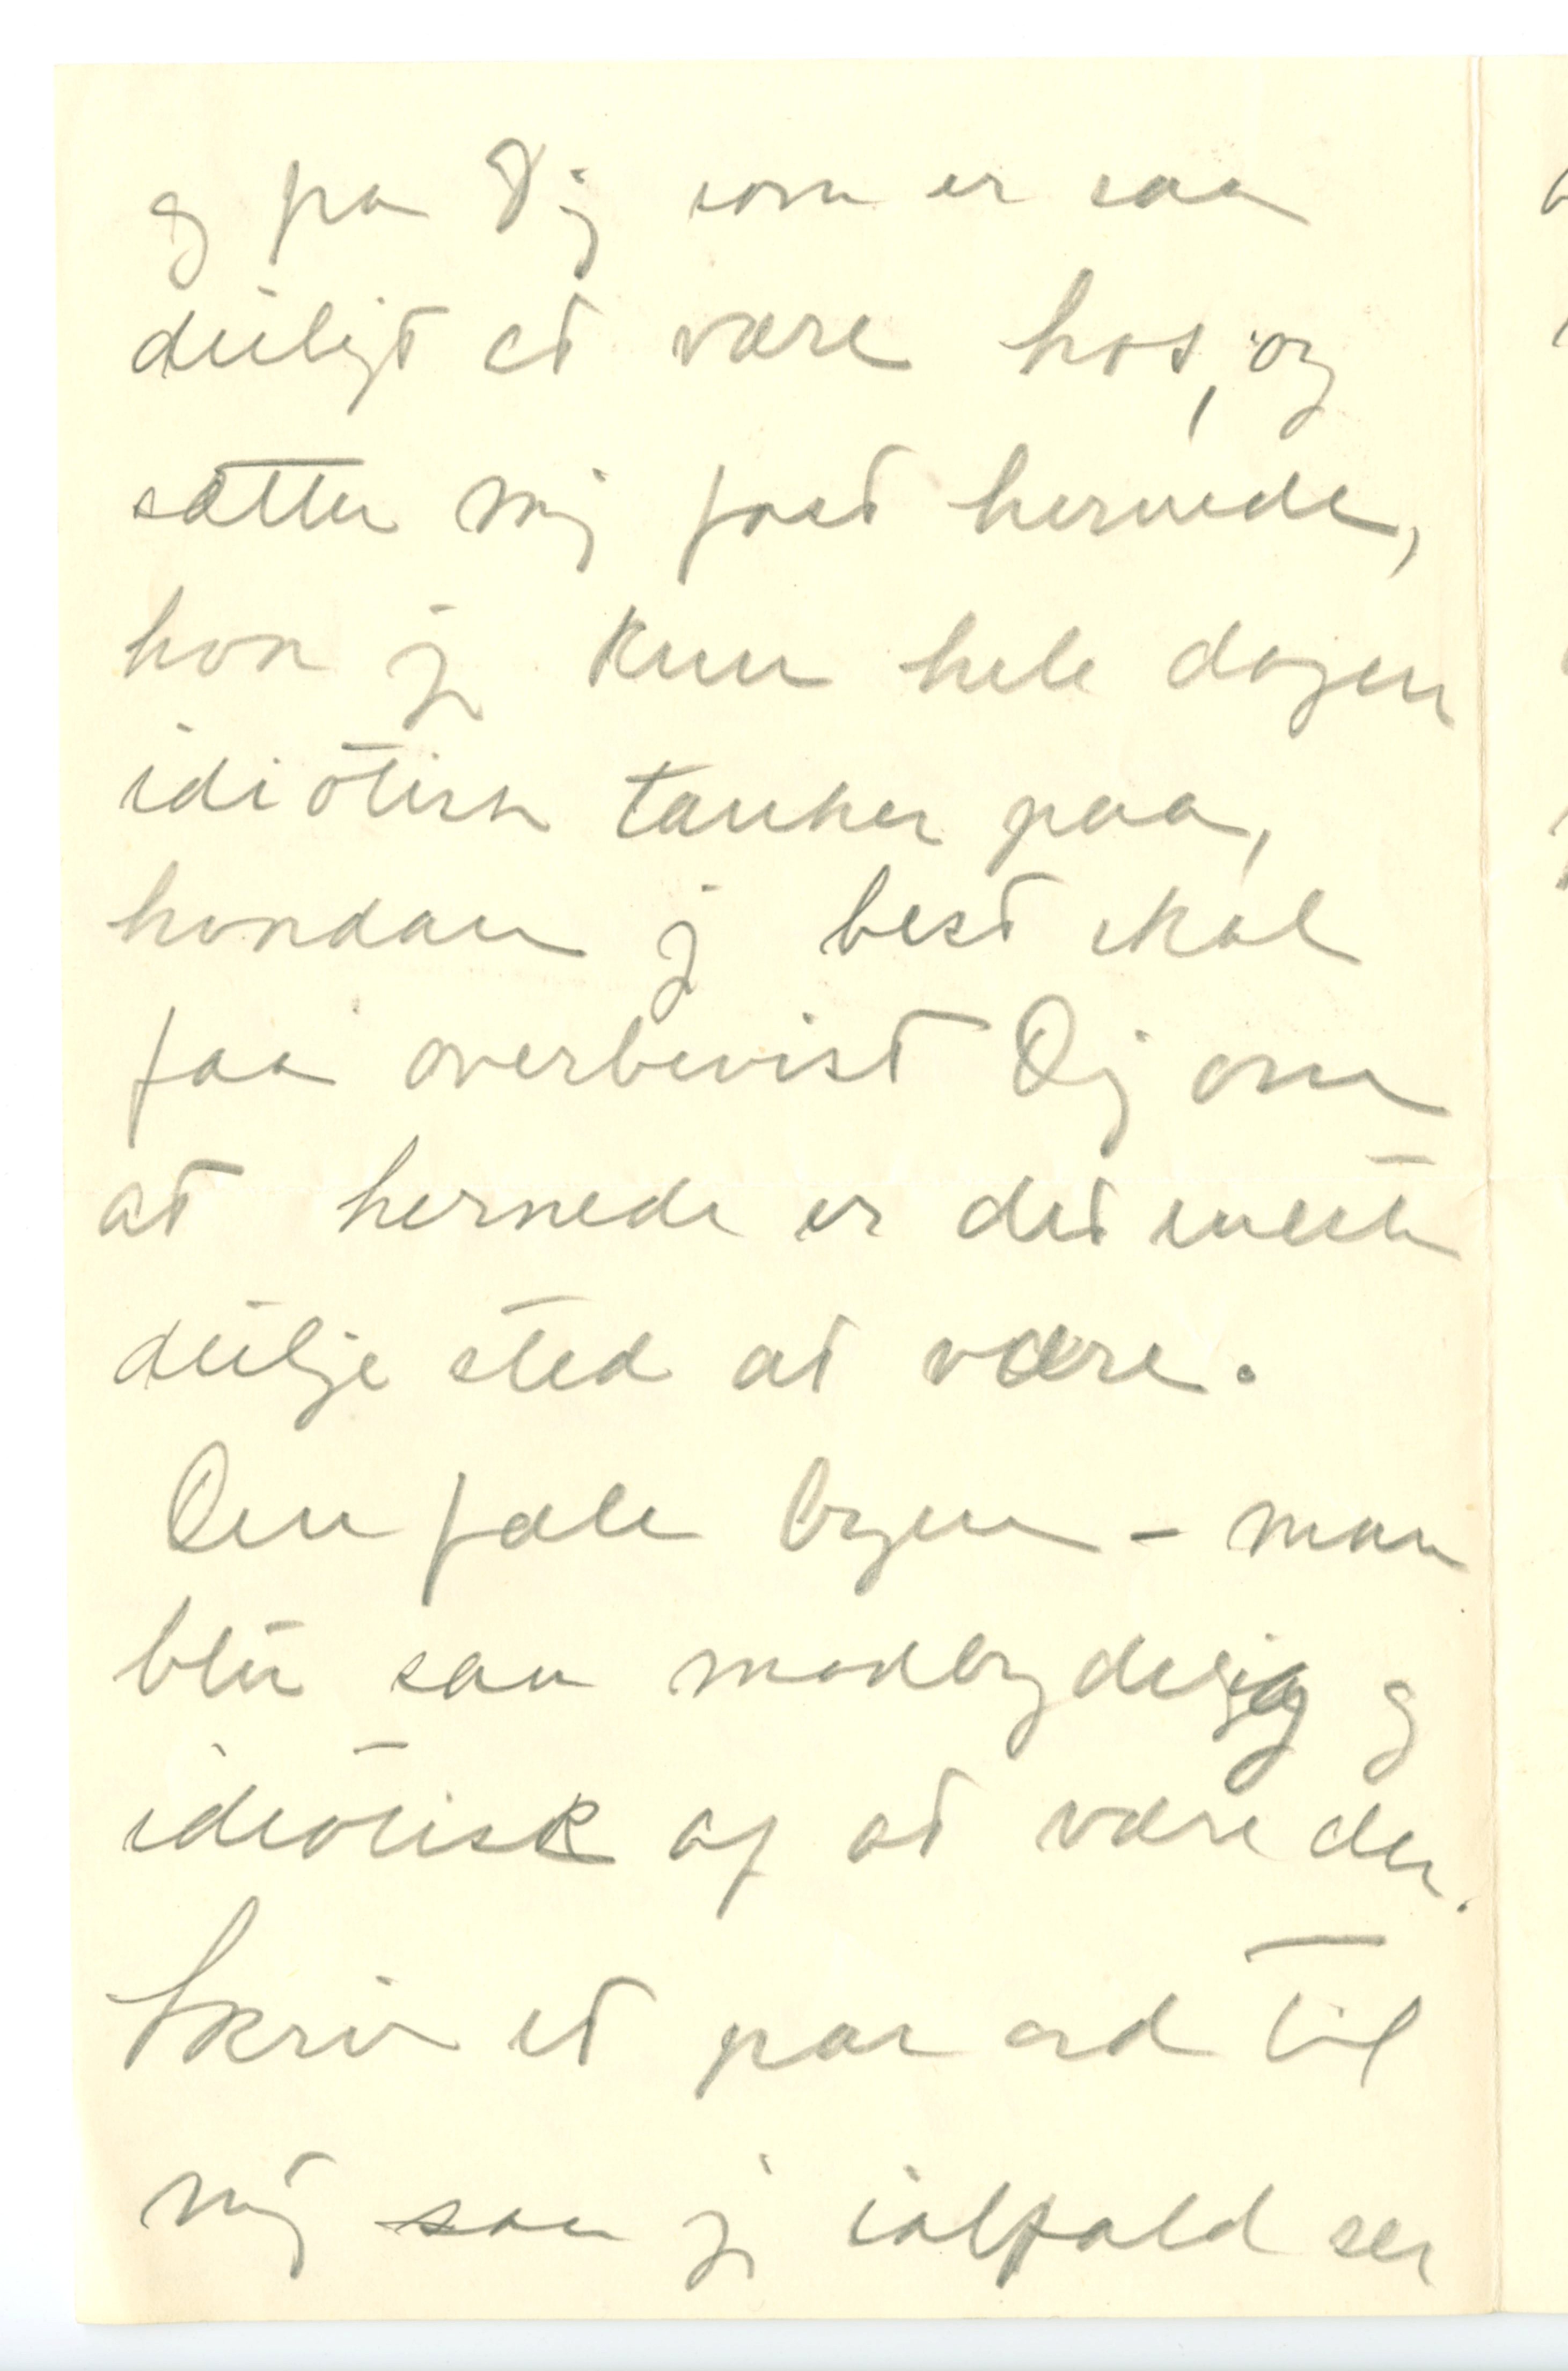 og fra Dig som er saa
deiligt at være hos, og
sætter mig fast hernede,
hvor jeg kun hele dagen
idiotisk tænker paa,
hvordan jeg best skal
faa overbevist Dig om
at hernede er det eneste
deilige sted at være.
Den fæle byen - man
blir saa modbydelig og
idiotisk af at være der.
Skriv et par ord til
mig saa jeg ialfald ser